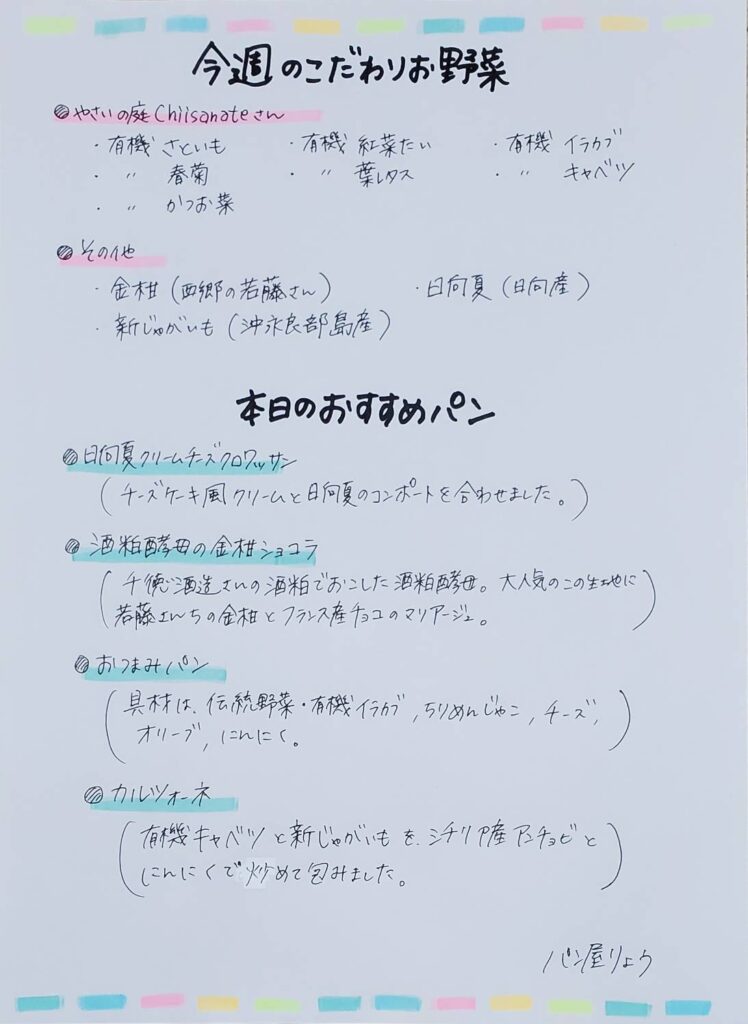 今週のこだわりお野菜
●やさいの庭Chiisanateさん
・有機 さといも ・有機 紅菜たい ・有機 イラカブ
・〃 春菊 ・〃 葉レタス ・〃 キャベツ
・〃 かつお菜
●その他
・金柑(西郷の若藤さん) ・日向夏(日向産)
・新じゃがいも(沖永良部島産)
本日のおすすめパン
●日向夏クリームチーズクロワッサン
(チーズケーキ風クリームと日向夏のコンポートを合わせました。)
●酒粕酵母の金柑ショコラ
(千徳酒造さんの酒粕でおこした酒粕酵母。大人気のこの生地に
若藤さんちの金柑とフランス産チョコのマリアージュ。)
●おつまみパン
(具材は、伝統野菜・有機イラカブ,ちりめんじゃこ,チーズ,
オリーブ,にんにく。)
●カルツォーネ
(有機キャベツと新じゃがいもを、シチリア産アンチョビと
にんにくで炒めて包みました。)
パン屋りょう